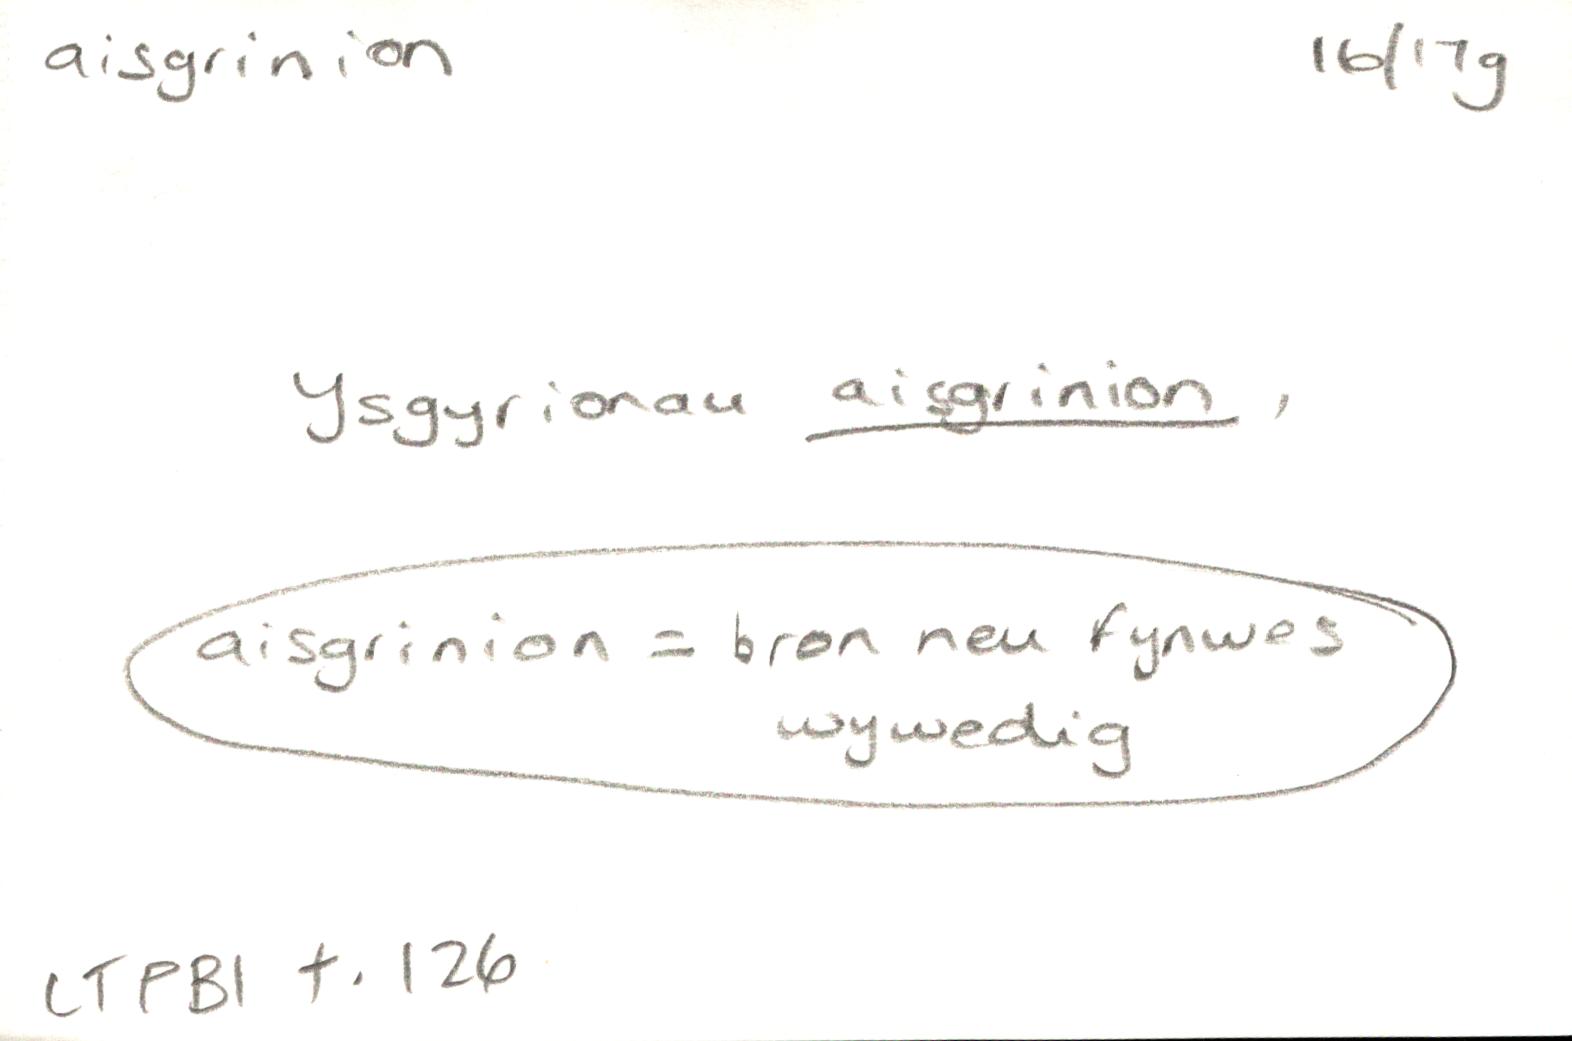 aisgrinion 16/17g
Ysgyrionau aisgrinion,
aisgrinion = bron neu fynwes
wywedig
LTPB1 t. 126